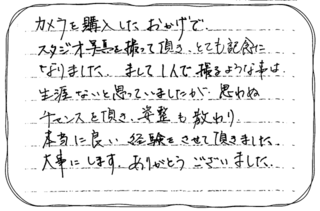 カメラを購入したおかげで、
スタジオ写真を撮って頂き、とても記念に
なりました。まして1人で撮るような事は
生涯ないと思っていましたが、思わぬ
チャンスを頂き、姿勢も教わり
本当に良い経験をさせて頂きました。
大事にします。ありがとうございました。